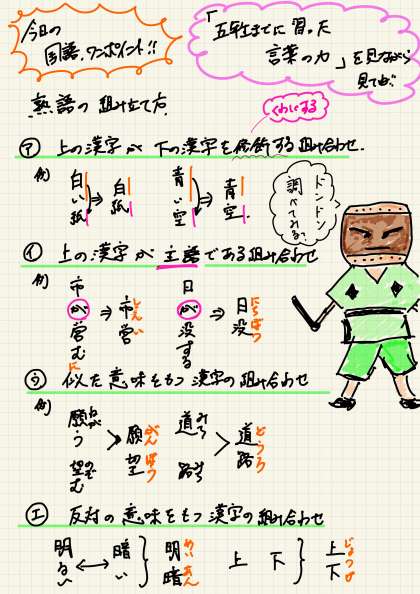 今日の
国語、ワンポイント!!
「五年生までに習った
言葉の力」を見ながら
見てね。
熟語の組み立て方
くわしくする
㋐ 上の漢字が下の漢字を修飾する組み合わせ.
例) 白い紙 ⇒ 白紙 青い空 ⇒ 青空.
ドンドン
調べてみる?
㋑ 上の漢字が主語である組み合わせ
例) 市が営む ⇒ 市営 しえい 日が没する ⇒ 日没 にちぼつ
㋒ 似た意味をもつ漢字の組み合わせ
に
例) 願う ねが 望む のぞ > 願望 がんぼう 道 みち 路 みち > 道路 どうろ
㋓ 反対の意味をもつ漢字の組み合わせ
明るい ↔ 暗い } 明暗 めいあん 上 下 } 上下 じょうげ